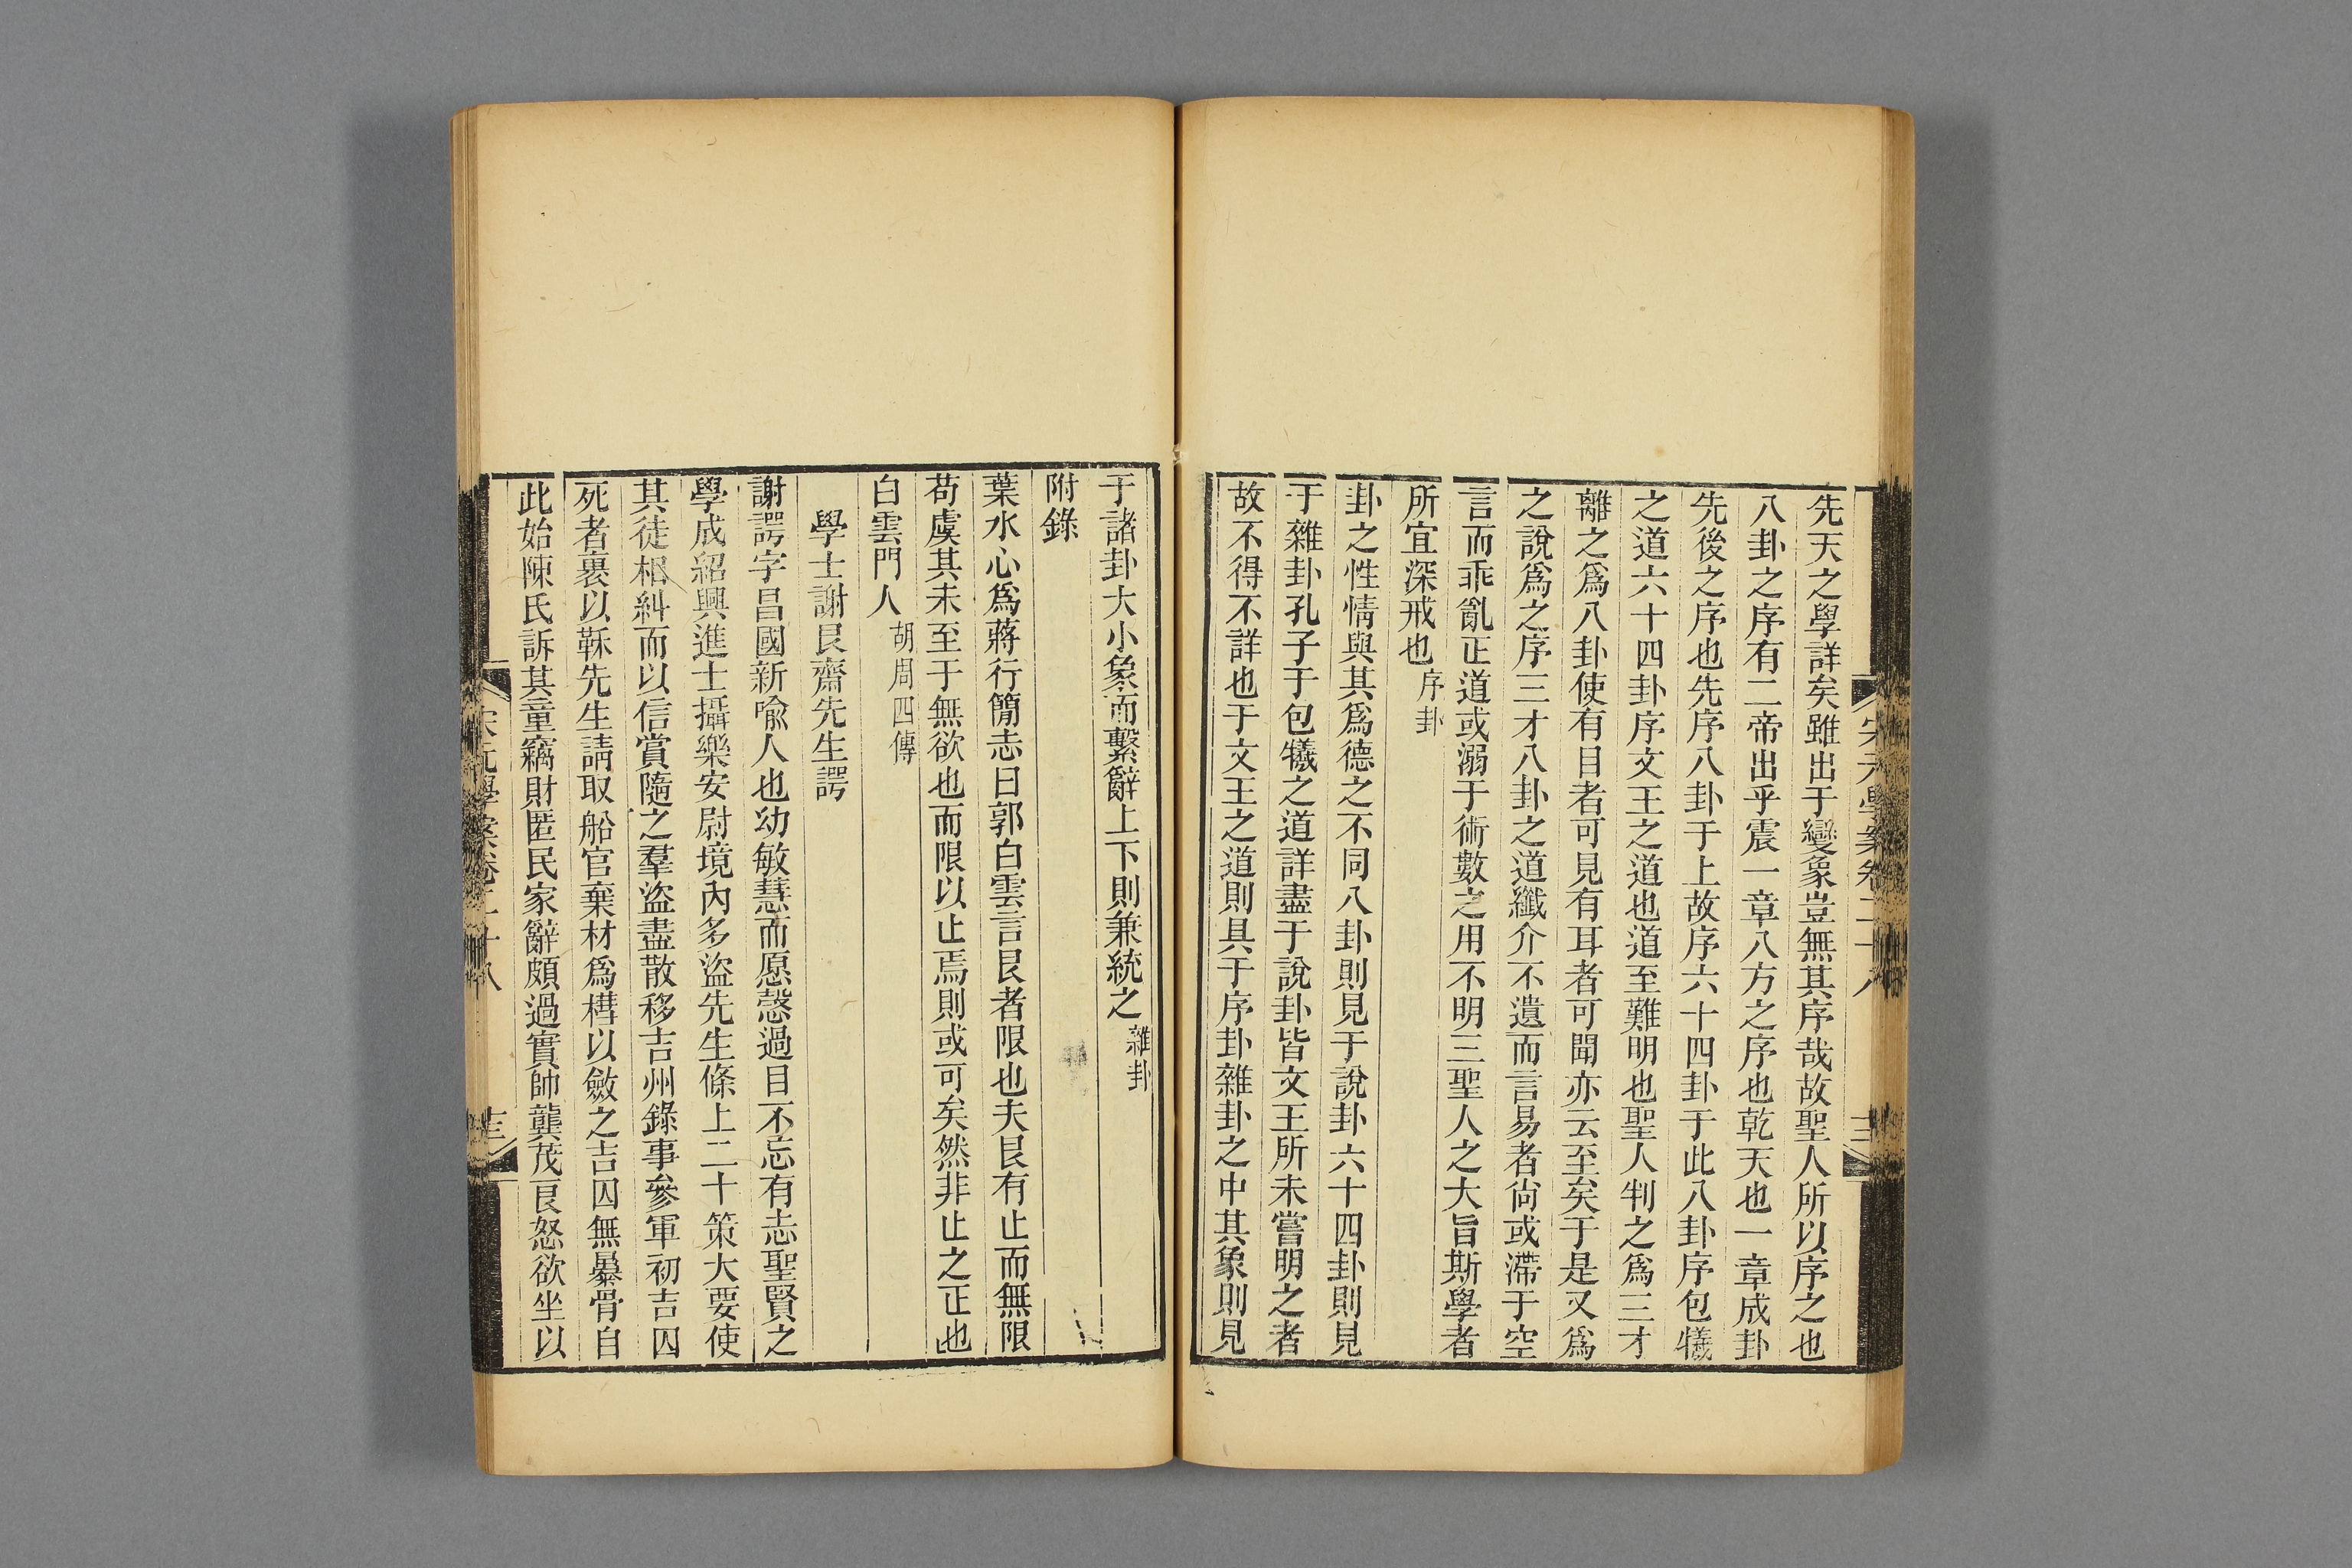 先天之學詳矣雖出于變象豈無其序哉故聖人所以序之也
八卦之序有二帝出乎震一章八方之序也乾天也一章成卦
先後之序也先序八卦于上故序六十四卦于此八卦序包犧
之道六十四卦序文王之道也道至難明也聖人判之爲三才
離之爲八卦使有目者可見有耳者可聞亦云至矣于是又爲
之說爲之序三才八卦之道纖介不遺而言易者尙或滯于空
言而乖亂正道或溺于術數之用不明三聖人之大旨斯學者
所宜深戒也序卦
卦之性情與其爲德之不同八卦則見于說卦六十四卦則見
于雜卦孔子于包犧之道詳盡于說卦皆文王所未嘗明之者
故不得不詳也于文王之道則具于序卦雜卦之中其象則見
于諸卦大小象而繫辭上下則兼統之雜卦
附錄
葉水心爲蔣行簡志曰郭白雲言艮者限也夫艮有止而無限
苟虞其未至于無欲也而限以止焉則或可矣然非止之正也
白雲門人胡周四傳
學士謝艮齋先生諤
謝諤字昌國新喩人也幼敏慧而愿愨過目不忘有志聖賢之
學成紹興進士攝樂安尉境內多盜先生條上二十策大要使
其徒相糾而以信賞隨之羣盜盡散移吉州錄事參軍初吉囚
死者裹以鞂先生請取船官棄材爲槥以斂之吉囚無暴骨自
此始陳氏訴其童竊財匿民家辭頗過實帥龔茂良怒欲坐以
宋元學案卷二十八